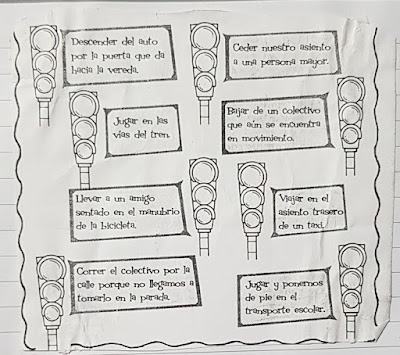 Descender del auto
por la puerta que da
hacia la vereda.
Ceder nuestro asiento
a una persona mayor.
Jugar en las
vías del tren.
Bajar de un colectivo
que aún se encuentra
en movimiento.
Llevar a un amigo
sentado en el manubrio
de la bicicleta.
Viajar en el
asiento trasero
de un taxi.
Correr el colectivo por la
calle porque no llegamos a
tomarlo en la parada.
Jugar y ponernos
de pie en el
transporte escolar.